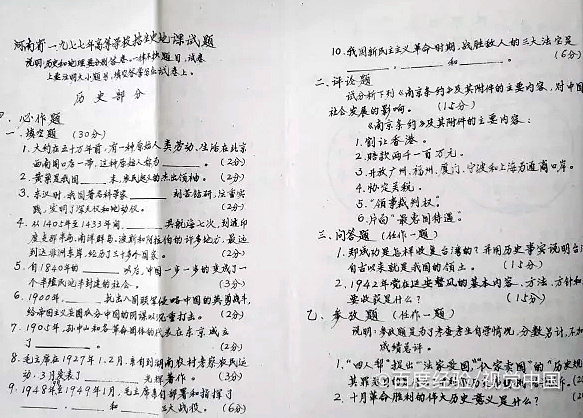 河南省一九七七年高等学校招生史地课试题
说明:历史和地理要分别答卷,一律不抄题目,试卷
上要注明大小题号,填空答案写在试卷上。
历史部分
甲、必作题
一、填空题 (30分)
1.大约在五十万年前,有一种原始人类劳动、生活在北京
西南周口店一带,这种原始人称为______。(2分)
2.黄巢是我国____末,农民起义的杰出领袖。(2分)
3.东汉时,我国著名科学家______刻苦钻研,注重实
践,发明了浑天仪和地动仪。(2分)
4.从1405年至1433年间,______共航海七次,到达印
度支那半岛、南洋群岛、波斯和阿拉伯的许多地方,最远
到达非洲东岸,经历了三十多个国家。(2分)
5.自1840年的______以后,中国一步一步的变成了一
个半殖民地半封建的社会。(3分)
6.1900年,______抗击八国联军侵略中国的英勇战斗,
给帝国主义妄图瓜分中国的阴谋以沉重打击。(2分)
7.1905年,孙中山和各革命团体的代表在东京成立
了______。(2分)
8.毛主席在1927年1、2月,亲自到湖南农村考察农民运
动,3月发表了______光辉著作。(3分)
9.1948年至1949年1月,毛主席亲自部署和指挥了
______、______和______三大战役。(6分)
10.我国新民主主义革命时期,战胜敌人的三大法宝是
______,______和______。(6分)
二、评论题
试分析下列《南京条约》及其附件的主要内容,对中国
社会发展的影响。(15分)
《南京条约》及其附件的主要内容:
1.割让香港。
2.赔款两千一百万元。
3.开放广州、福州、厦门、宁波和上海为通商口岸。
4.协定关税。
5."领事裁判权"。
6.片面"最惠国待遇"。
三、问答题 (任作一题)
1.郑成功是怎样收复台湾的?并用历史事实说明台
自古以来就是我国的领土。(15分)
2.1942年党在延安整风的基本内容、方法、方针和
要收获是什么?(15分)
乙、参考题 (任作一题)
说明:参考题是为了考查考生自学情况,分数另计,不加
成绩总评。
1."四人帮"提出"法家爱国""儒家卖国"的"历史规
其罪恶
2.十月革命胜利的伟大历史意义是什么?
百度经验/视觉中国